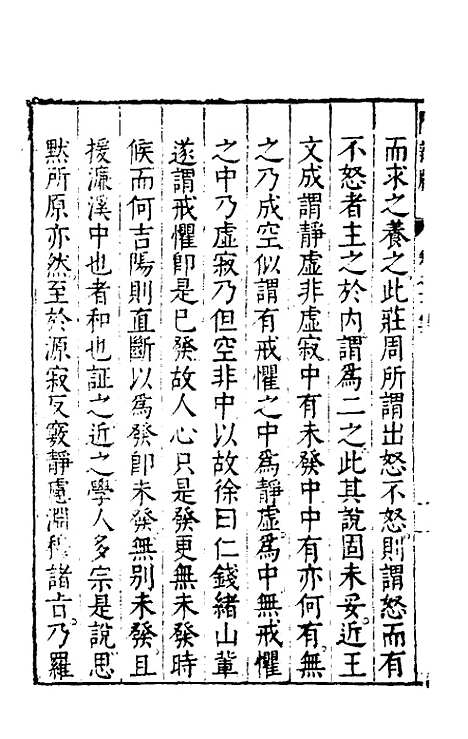 而求之養之此莊周所謂出怒不怒則謂怒而有
不怒者主之於内謂爲二之此其說固未妥近王
文成謂靜虛非虛寂中有未發中中有亦何有無
之乃成空似謂有戒懼之中爲靜虛爲中無戒懼
之中乃虛寂乃但空非中以故徐曰仁錢緒山輩
遂謂戒懼卽是已發故人心只是發更無未發時
候而何吉陽則直斷以爲發卽未發無別未發且
援濂溪中也者和也証之近之學人多宗是說思
默所原亦然至於源寂反竅靜虛淵穆諸古乃羅